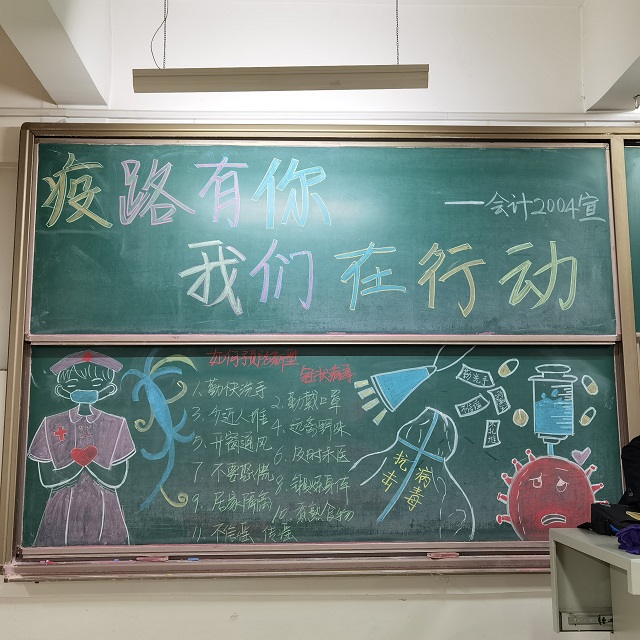 疫路有你
——会计2004宣
我们在行动
如何预防新型
冠状病毒
1、勤快洗手
2、勤戴口罩
3、少近人群
4、远离野味
5、开窗通风
6、及时就医
7、不要恐慌
8、锻炼身体
9、居家隔离
10、煮熟食物
11、不信谣、传谣
抗击
病毒
勤洗手